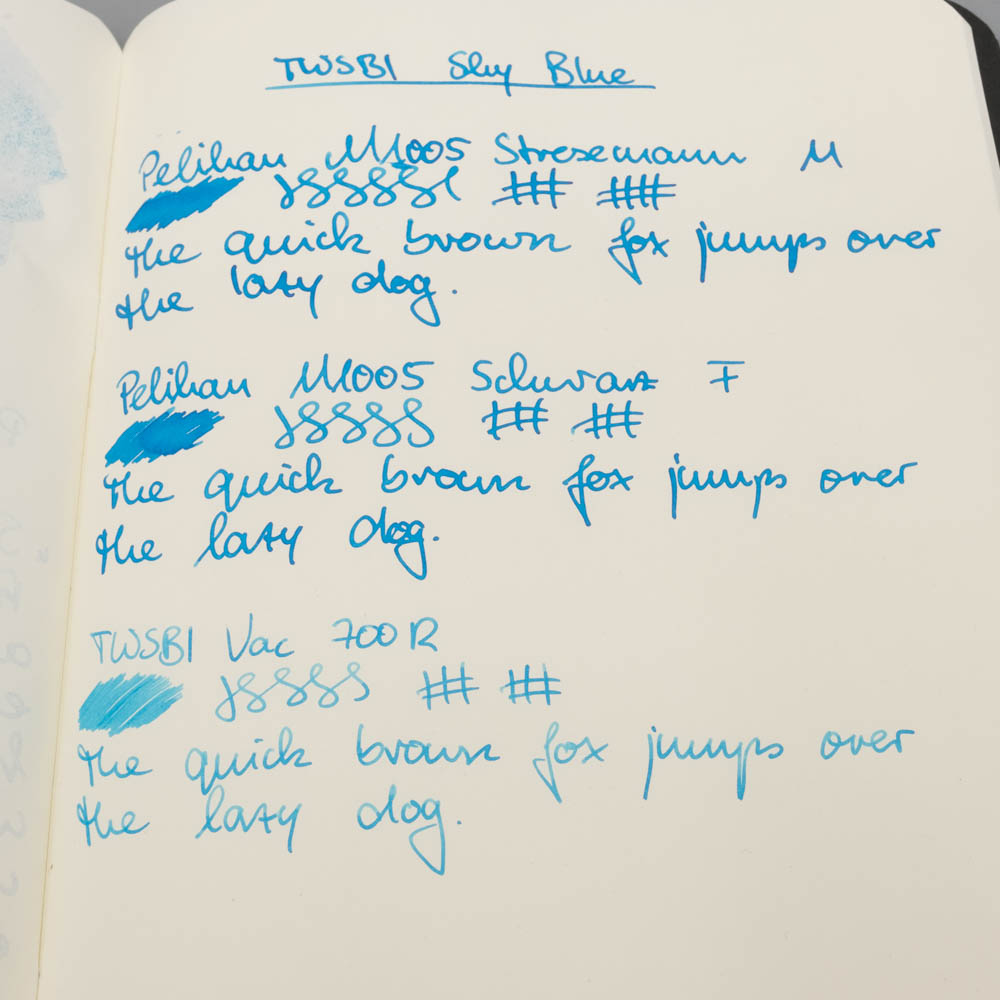 TWSBI Sky Blue
Pelikan M1005 Stresemann M
the quick brown fox jumps over
the lazy dog.
Pelikan M1005 Schwarz F
the quick brown fox jumps over
the lazy dog.
TWSBI Vac 700R
the quick brown fox jumps over
the lazy dog.